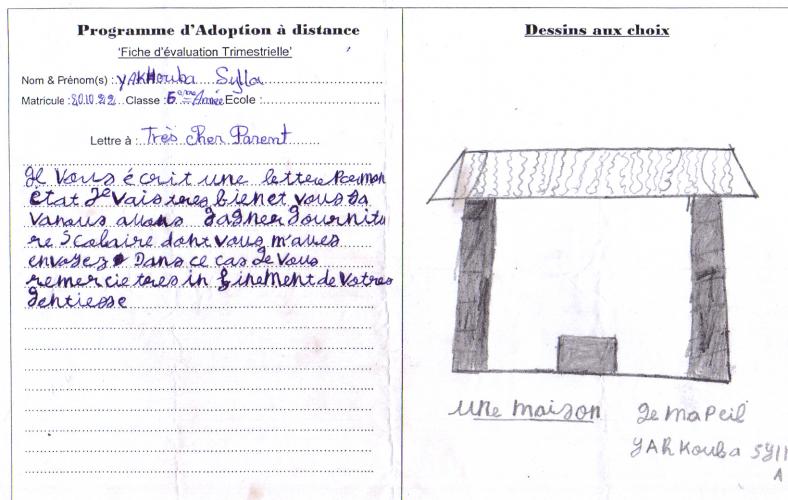 Programme d'Adoption à distance
'Fiche d'évaluation Trimestrielle'
Nom & Prénom(s) : YAKHouba Sylla
Matricule : 80.10.212 Classe : 6ème Année Ecole :
Lettre à : Très cher Parent
Je vous écrit une lettre Par mon
état Je vais tres bien et vous sa
va nous allons gagner fournitu
re scolaire dont vous m'aves
envoyez Dans ce cas Je vous
remercie tres in finement de votres
gentiesse
Dessins aux choix
une maison
Je mapeil
YAkkouba Syll
A